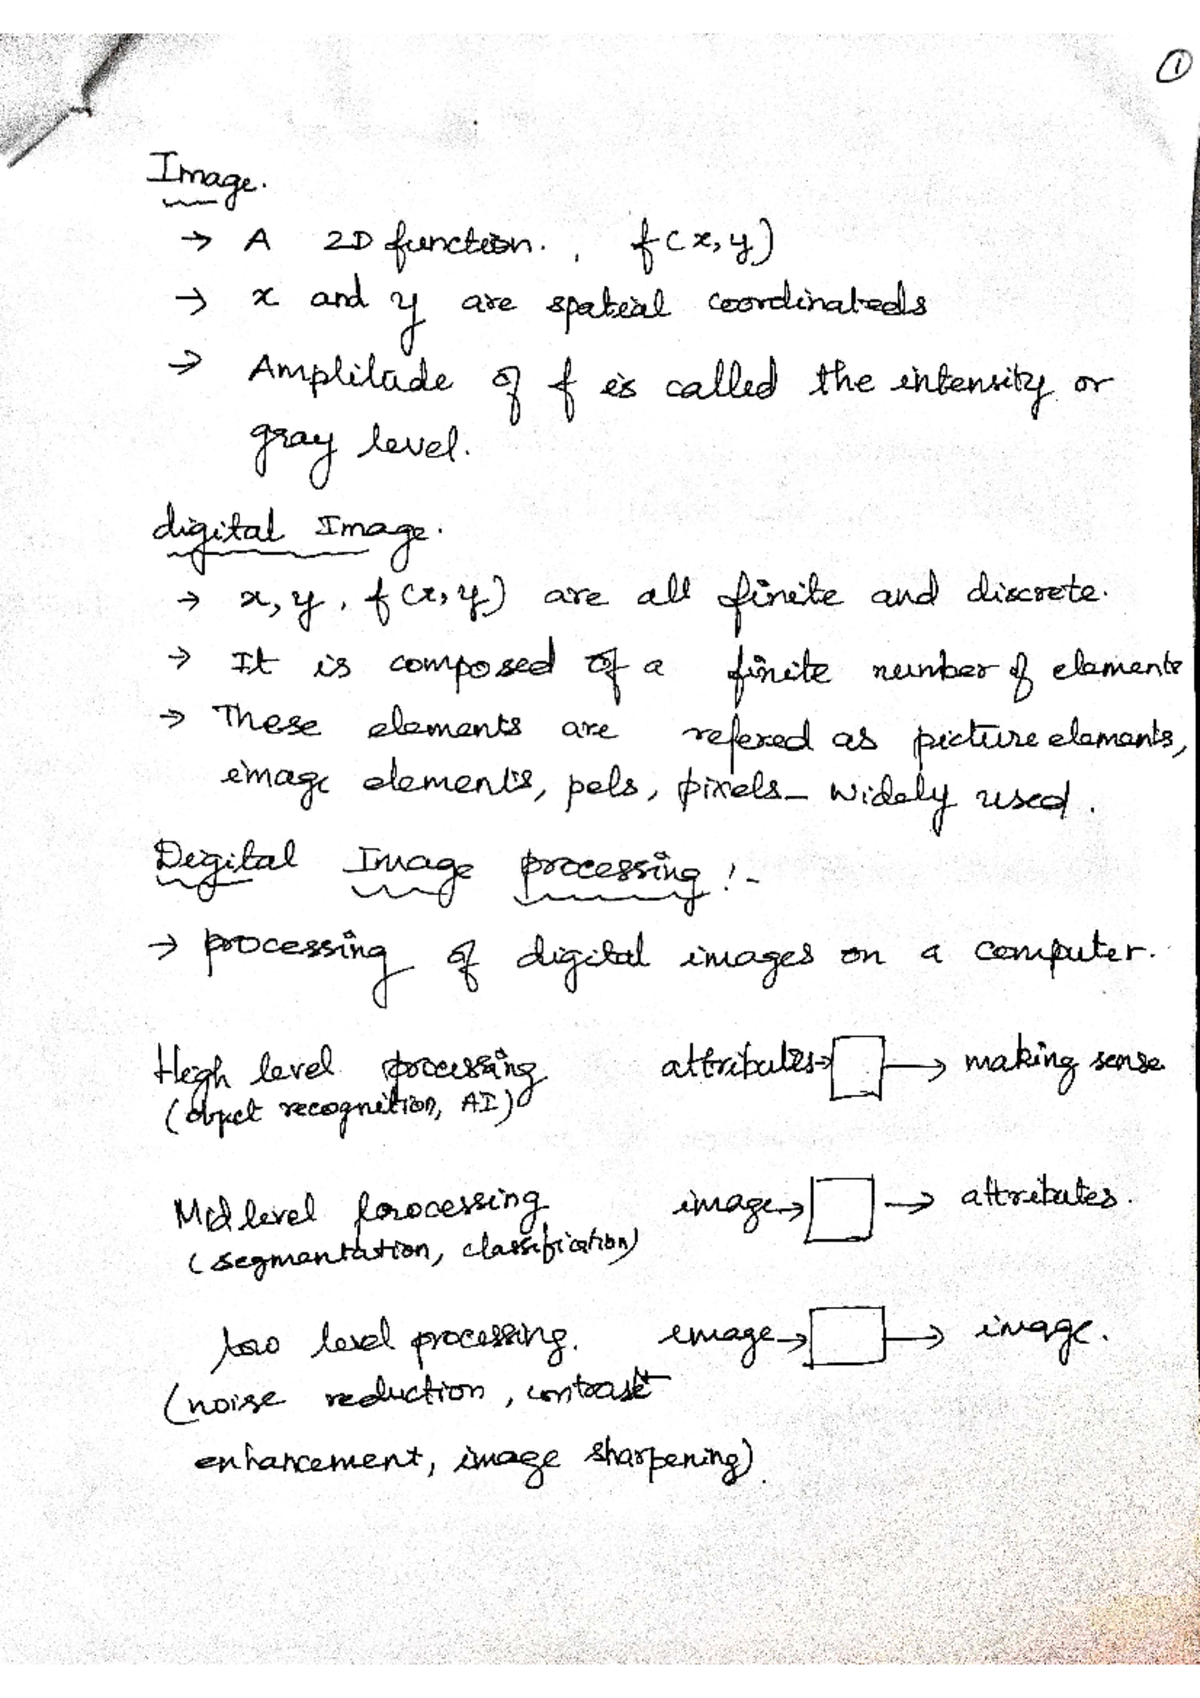 ①
Image.
→ A 2D function., f(x,y)
→ x and y are spatial coordinateds
→ Amplitude of f is called the intensity or
gray level.
digital Image.
→ x, y, f(x,y) are all finite and discrete.
→ It is composed of a finite number of elements
→ These elements are refered as picture elements,
image elements, pels, pixels - widely used.
Digital Image processing :-
→ processing of digital images on a computer.
High level processing attributes→ □ → making sense
(object recognition, AI)
Mid level processing image→ □ → attributes.
(segmentation, classification)
low level processing. image→ □ → image.
(noise reduction, contrast
enhancement, image sharpening).